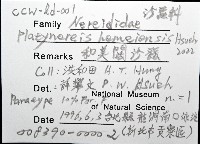 ccw-hd-001
Family Nereididae 沙蠶科
Platynereis homeiensis Hsueh 2022
Remarks 和美閣沙蠶
Coll: 洪和田 H. T. Hung
Det: 薛攀文 P.W. Hsueh
Paratype National Museum n=1
of Natural Science
Date 1996,6,3
008390-00002 (新北市貢寮區)